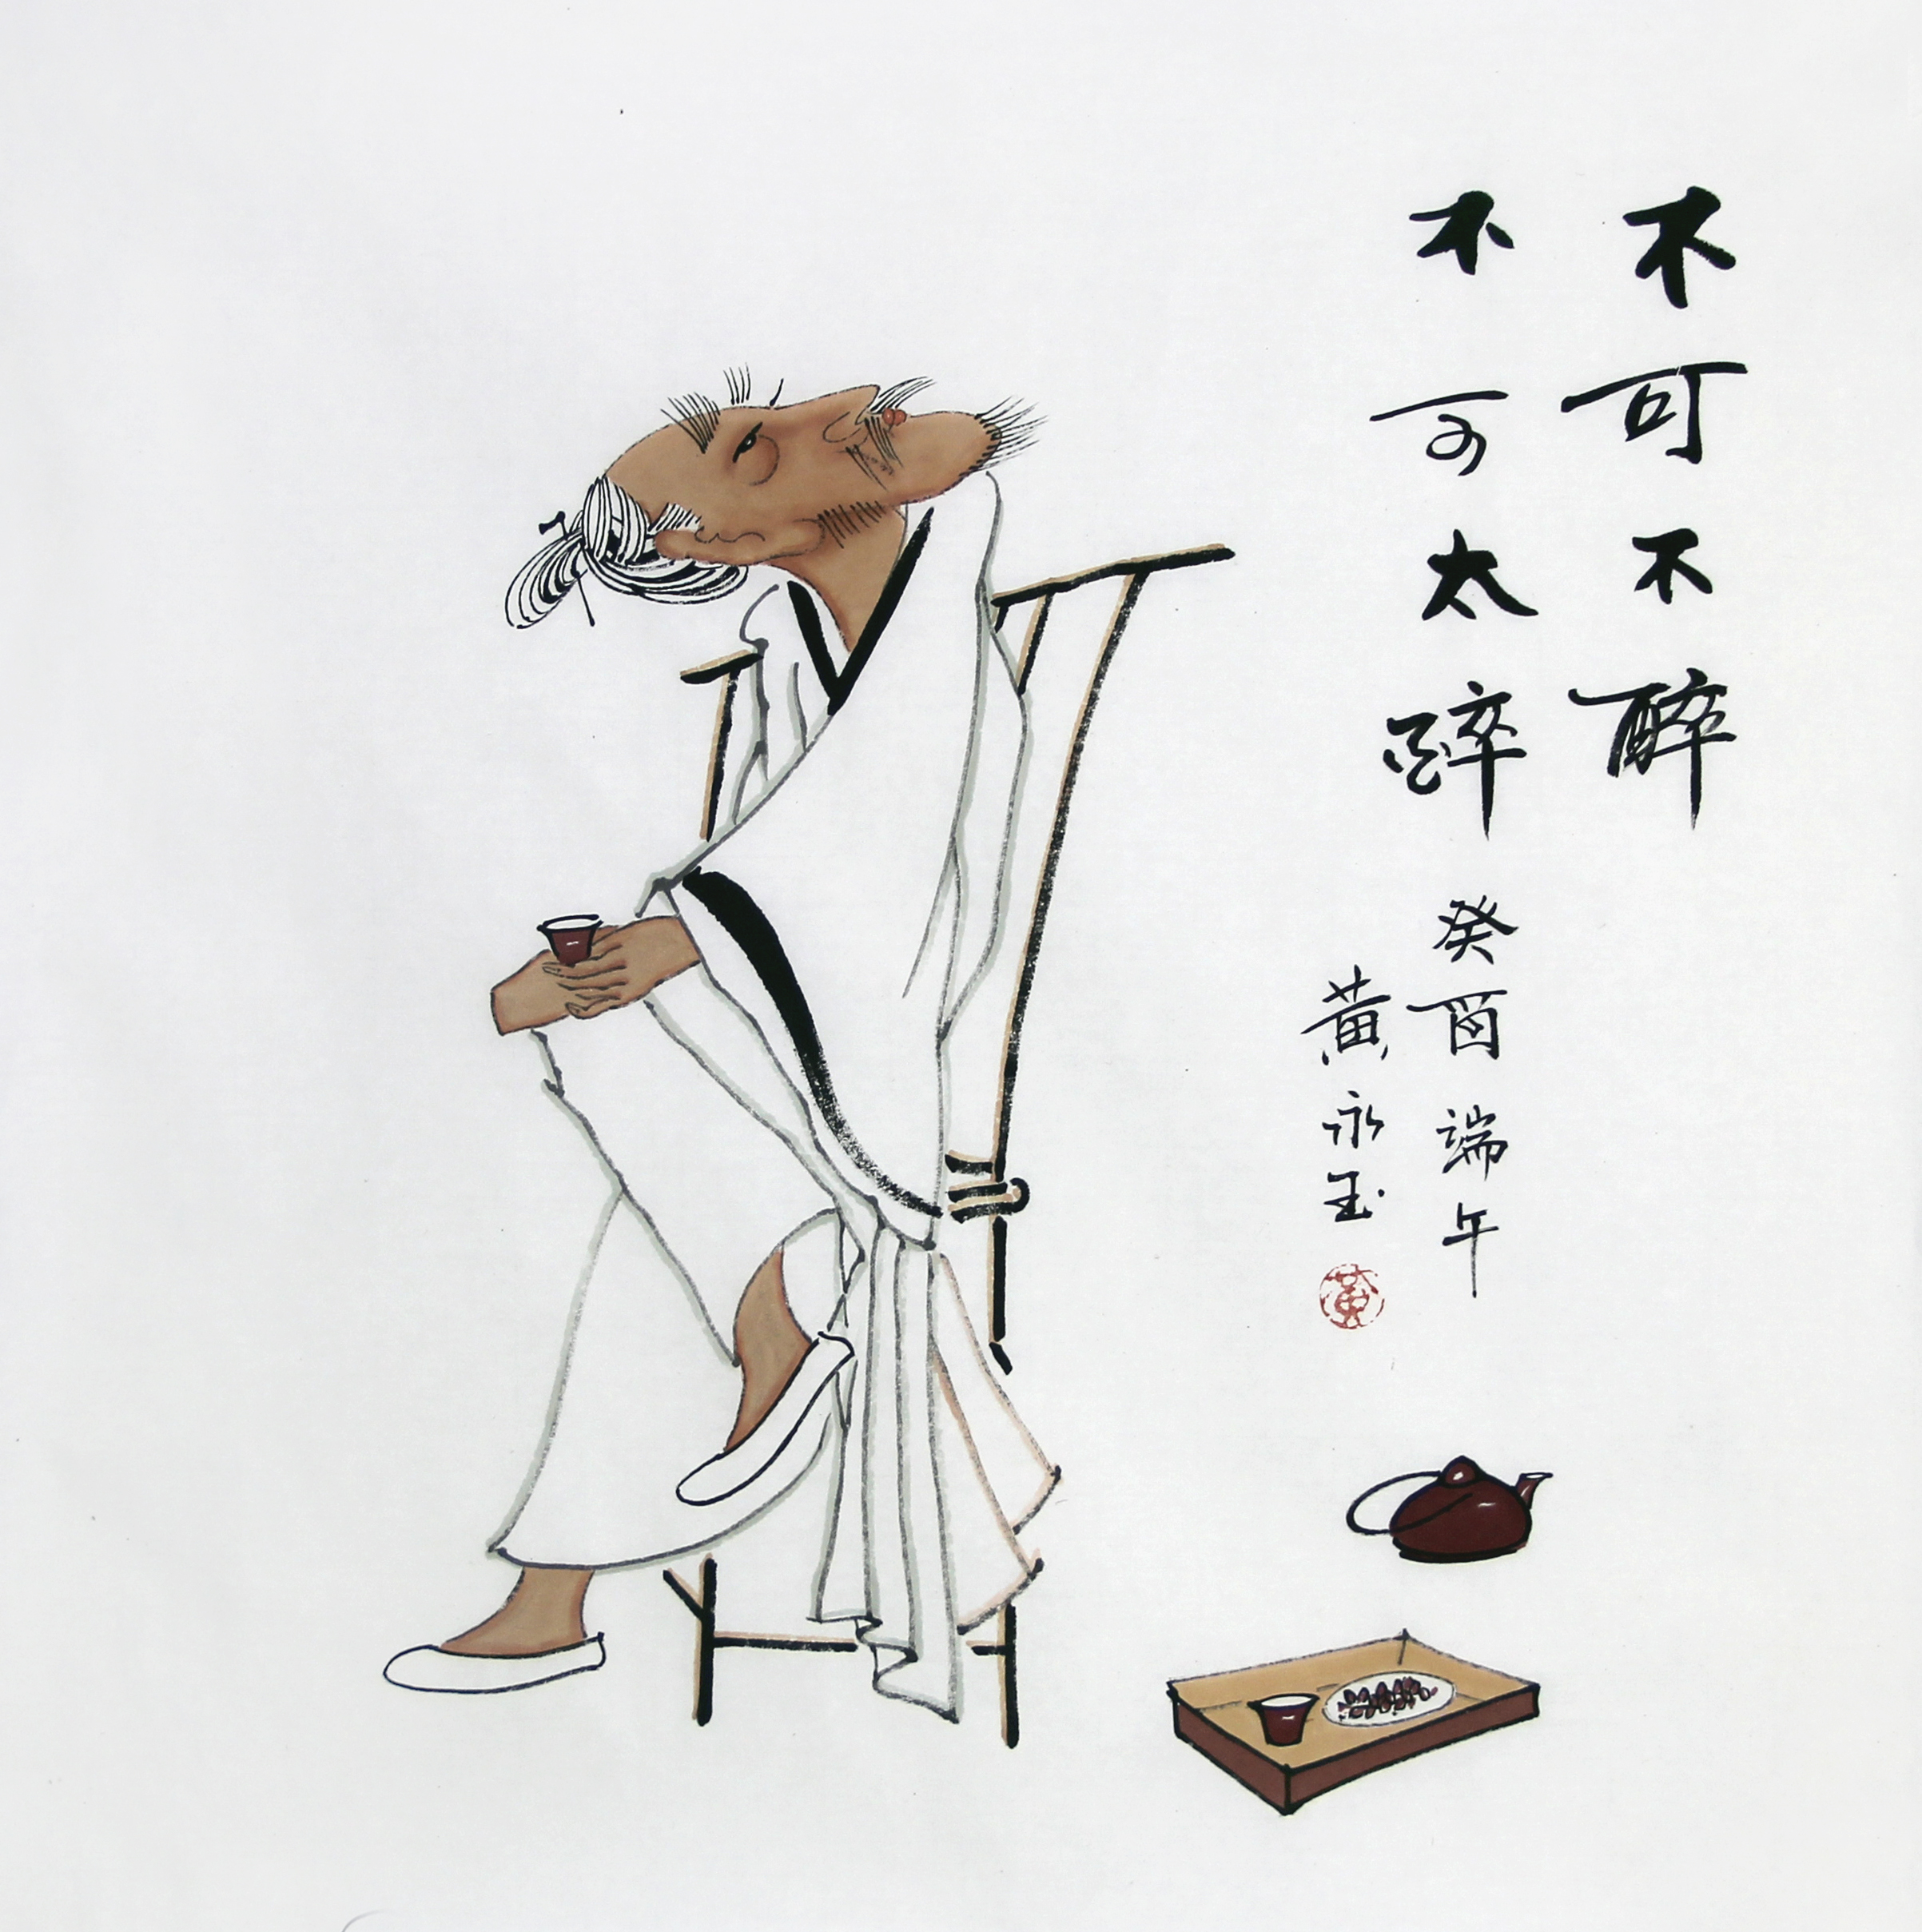 不可不醉
不可太醉 癸酉端午
黄永玉
黄